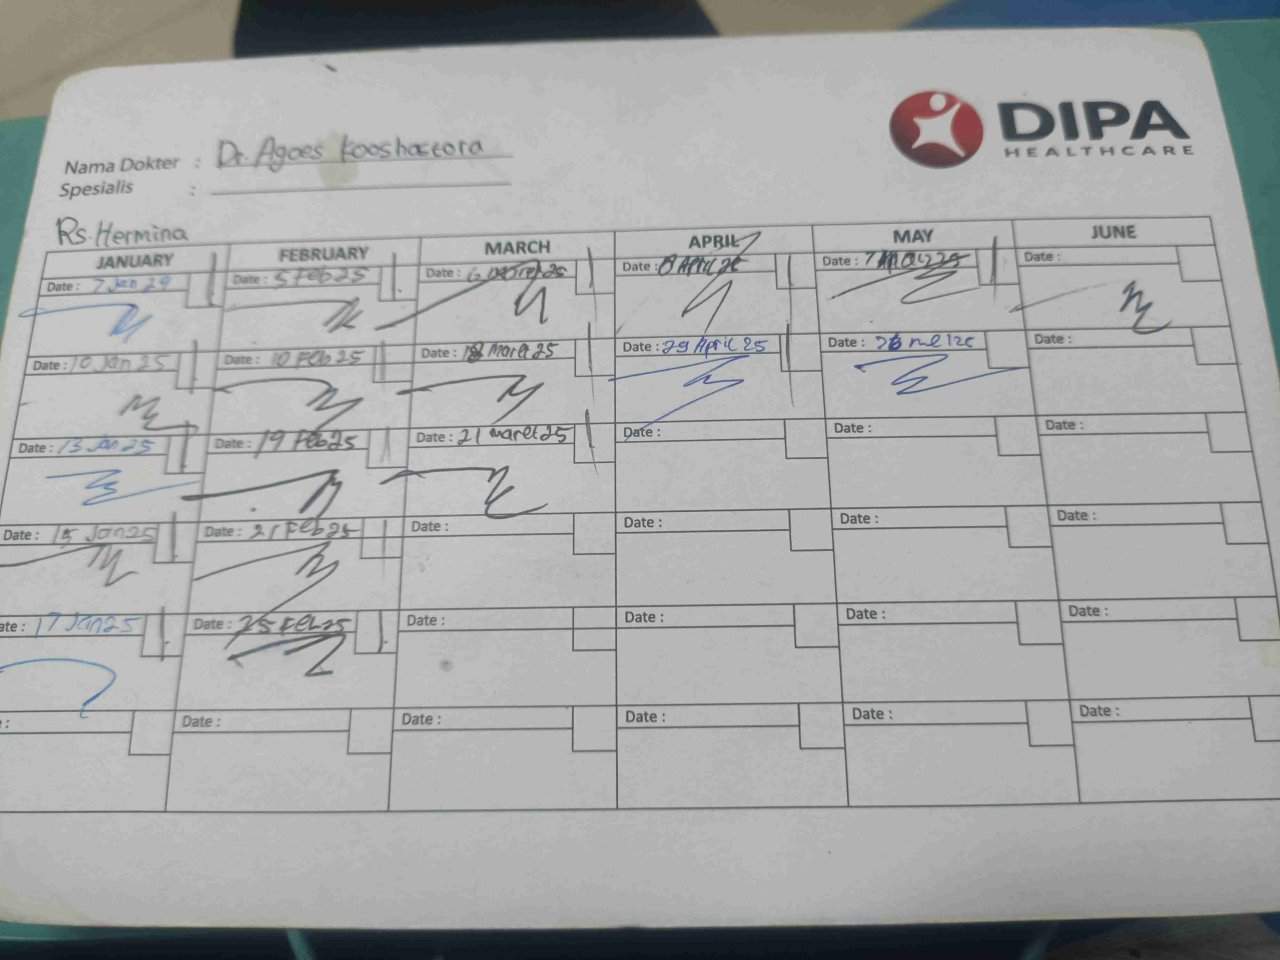 DIPA
HEALTHCARE
Nama Dokter : Dr. Agoes Kooshartoro
Spesialis :
Rs. Hermina
JANUARY FEBRUARY MARCH APRIL MAY JUNE
Date : 7 Jan 29 Date : 5 Feb 25 Date : 6 Maret 25 Date : 8 April 25 Date : 7 May 25 Date :
Date : 10 Jan 25 Date : 10 Feb 25 Date : 18 Maret 25 Date : 29 April 25 Date : Date :
Date : 13 Jan 25 Date : 19 Feb 25 Date : 21 Maret 25 Date : Date : Date :
Date : 15 Jan 25 Date : 21 Feb 25 Date : Date : Date : Date :
ate : 17 Jan 25 Date : 25 Feb 25 Date : Date : Date : Date :
: Date : Date : Date : Date : Date :